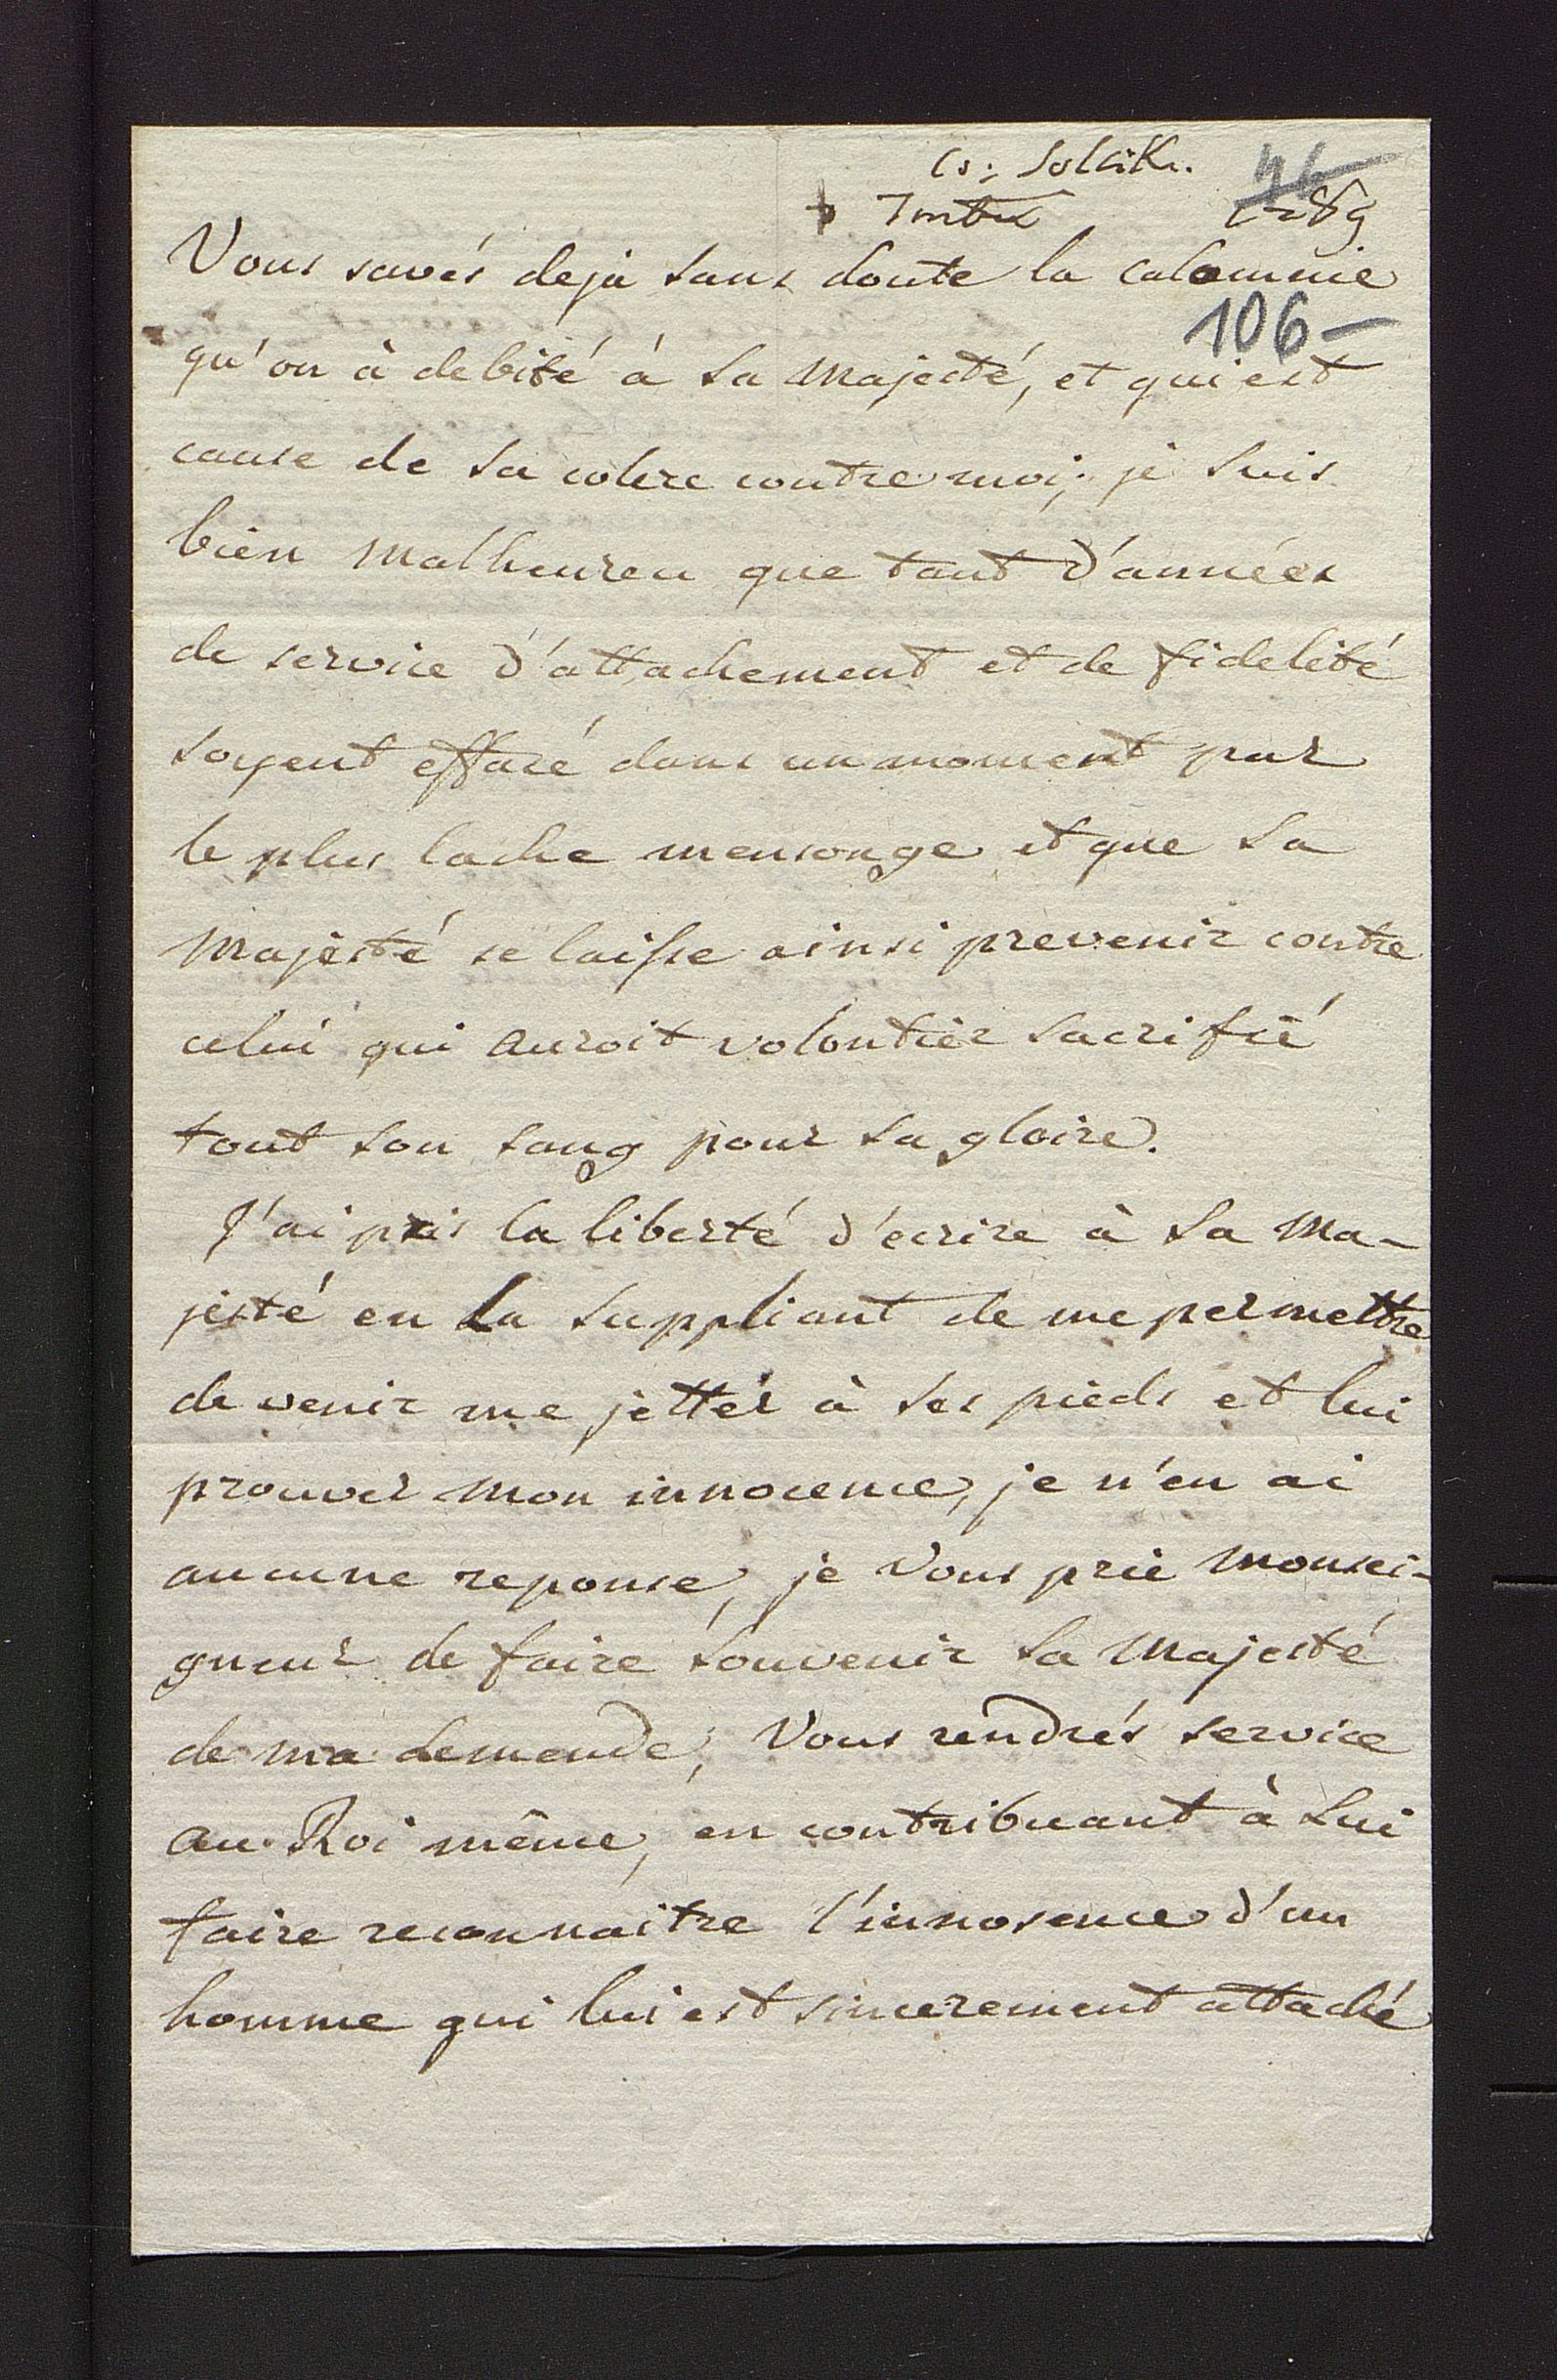 106
Vous savés deja sans doute la calomnie
qu'on à debité à Sa Majesté, et qui est
cause de sa colere contre moi; je suis
bien malheureu que tant d'années
de service d'attachement et de fidelité
soyent effacé dans un moment par
le plus lache mensonge et que Sa
Majesté se laisse ainsi prevenir contre
celui qui auroit volontier sacrifié
tout son sang pour sa gloire.
J'ai pris la liberté d'ecrire à Sa Ma-
jesté en La suppliant de me permettre
de venir me jetter à ses pieds et lui
prouver mon innocence, je n'en ai
aucune reponse, je Vous prie Monsei-
gneur de faire souvenir Sa Majesté
de ma demende, Vous rendrés service
au Roi même, en contribuant à Lui
faire reconnaitre l'innosence d'un
homme qui lui est sincerement attaché